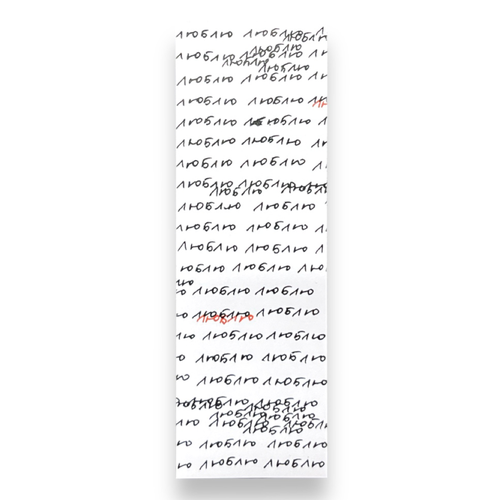 люблю люблю люблю
люблю люблю
люблю люблю
люблю люблю
люблю люблю
люблю люблю
люблю люблю
люблю люблю
люблю люблю
люблю люблю люблю
люблю люблю
люблю люблю
люблю люблю
люблю люблю
люблю люблю
люблю люблю люблю
люблю люблю
люблю люблю
люблю люблю
люблю люблю
люблю люблю
люблю люблю
люблю люблю
люблю люблю